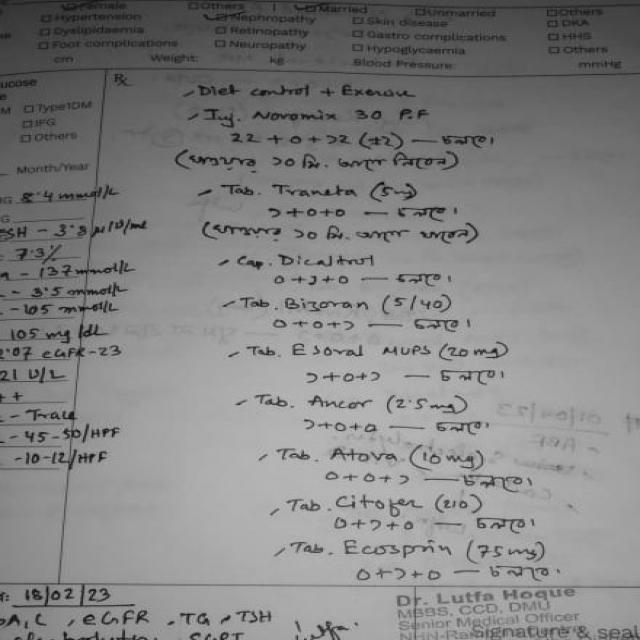 Female Others Married Unmarried Others
Hypertension Nephropathy Skin disease DKA
Dyslipidaemia Retinopathy Gastro complications HHS
Foot complications Neuropathy Hypoglycaemia Others
cm Weight: kg Blood Pressure: mmHg
Rx
Diet control + Exercise
Type1DM
Inj. Novomix 30 P.F
IFG
22 + 0 + 22 (±2) — চলবে।
Others
(খাওয়ার ১০ মি. আগে নিবেন)
Month/Year
8.4 mmol/L
Tab. Traneta (5mg)
১+০+০ — চলবে।
TSH - 3.8 μIU/ml
(খাওয়ার ১০ মি. আগে খাবেন)
7.3%
Cap. Dicaltrol
- 137 mmol/L
০+১+০ — চলবে।
- 3.5 mmol/L
Tab. Bizoran (5/40)
- 105 mmol/L
০+০+১ — চলবে।
105 mg/dL
Tab. Esoral MUPS (20mg)
2.07 eGFR-23
১+০+১ — চলবে।
21 U/L
Tab. Ancor (2.5mg)
- Trace
১+০+০ — চলবে।
- 45-50/HPF
Tab. Atova (10mg)
- 10-12/HPF
০+০+১ — চলবে।
Tab. Citofer (210)
০+১+০ — চলবে।
Tab. Ecosprin (75mg)
০+১+০ — চলবে।
18/02/23
Dr. Lutfa Hoque
MBBS, CCD, DMU
A1C, eGFR, TG, TSH
Senior Medical Officer
SGPT
Signature & seal